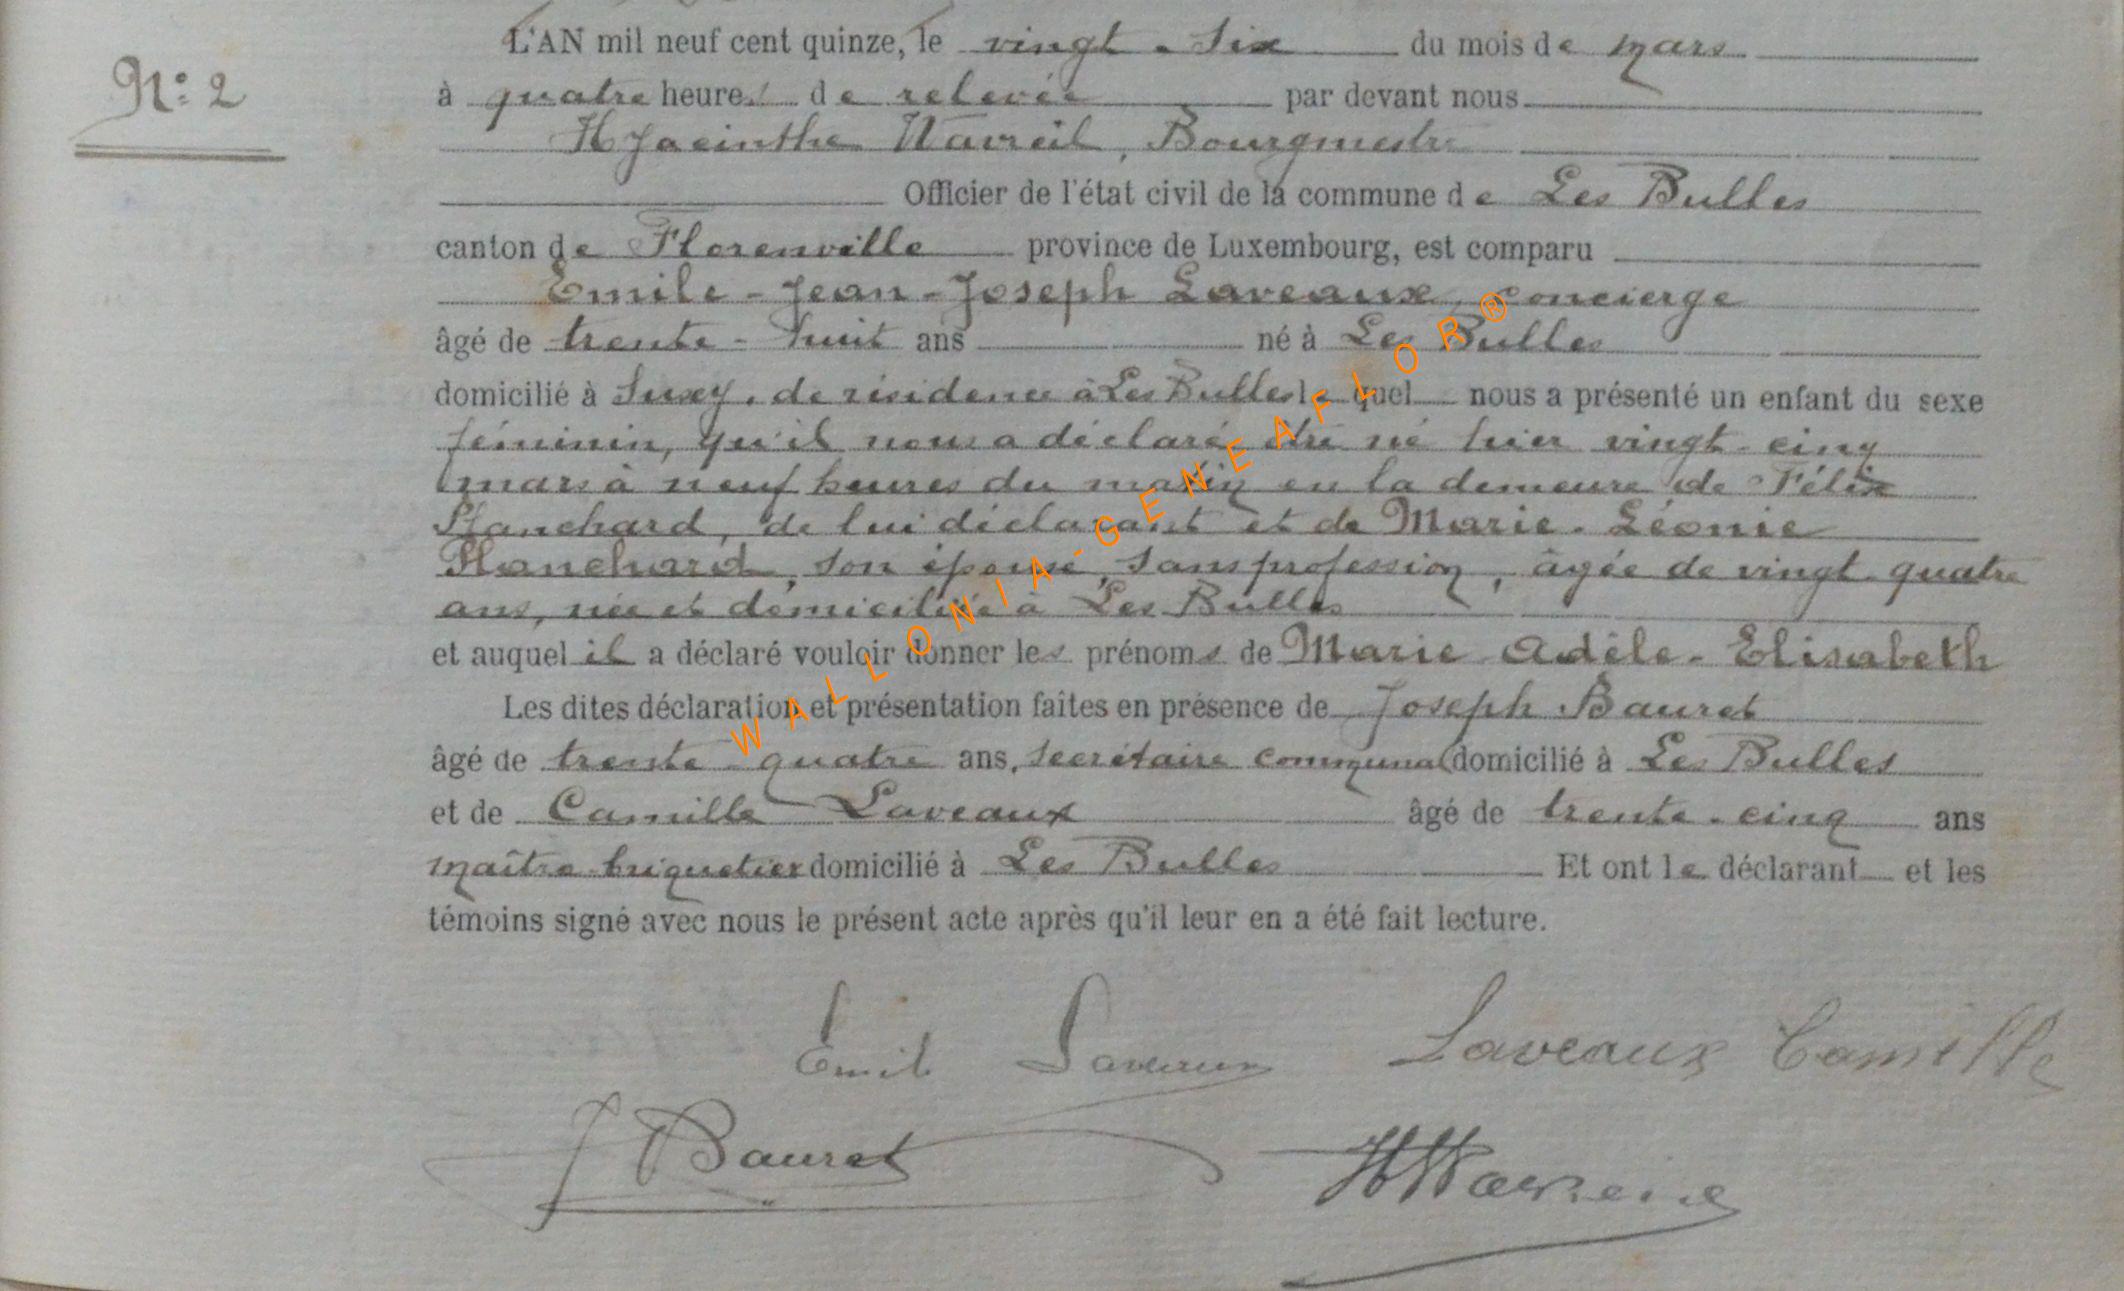 N° 2
L'AN mil neuf cent quinze, le vingt-six du mois de mars
à quatre heures de relevée par devant nous
Hyacinthe Wavreil, Bourgmestre
Officier de l'état civil de la commune de Les Bulles
canton de Florenville province de Luxembourg, est comparu
Emile-Jean-Joseph Laveaux, concierge
âgé de trente-huit ans né à Les Bulles
domicilié à Suxy, de résidence à Les Bulles lequel nous a présenté un enfant du sexe
féminin, qu'il nous a déclaré être né hier vingt-cinq
mars à neuf heures du matin en la demeure de Félix
Planchard, de lui déclarant et de Marie-Léonie
Planchard, son épouse, sans profession, âgée de vingt-quatre
ans, née et domiciliée à Les Bulles
et auquel il a déclaré vouloir donner les prénoms de Marie-Adèle-Elisabeth
Les dites déclaration et présentation faites en présence de Joseph Bauret
âgé de trente-quatre ans, secrétaire communal domicilié à Les Bulles
et de Camille Laveaux âgé de trente-cinq ans
maître briquetier domicilié à Les Bulles Et ont le déclarant et les
témoins signé avec nous le présent acte après qu'il leur en a été fait lecture.
Emile Laveaux Laveaux Camille
J Bauret
WALLONIA-GENEAFLOR®